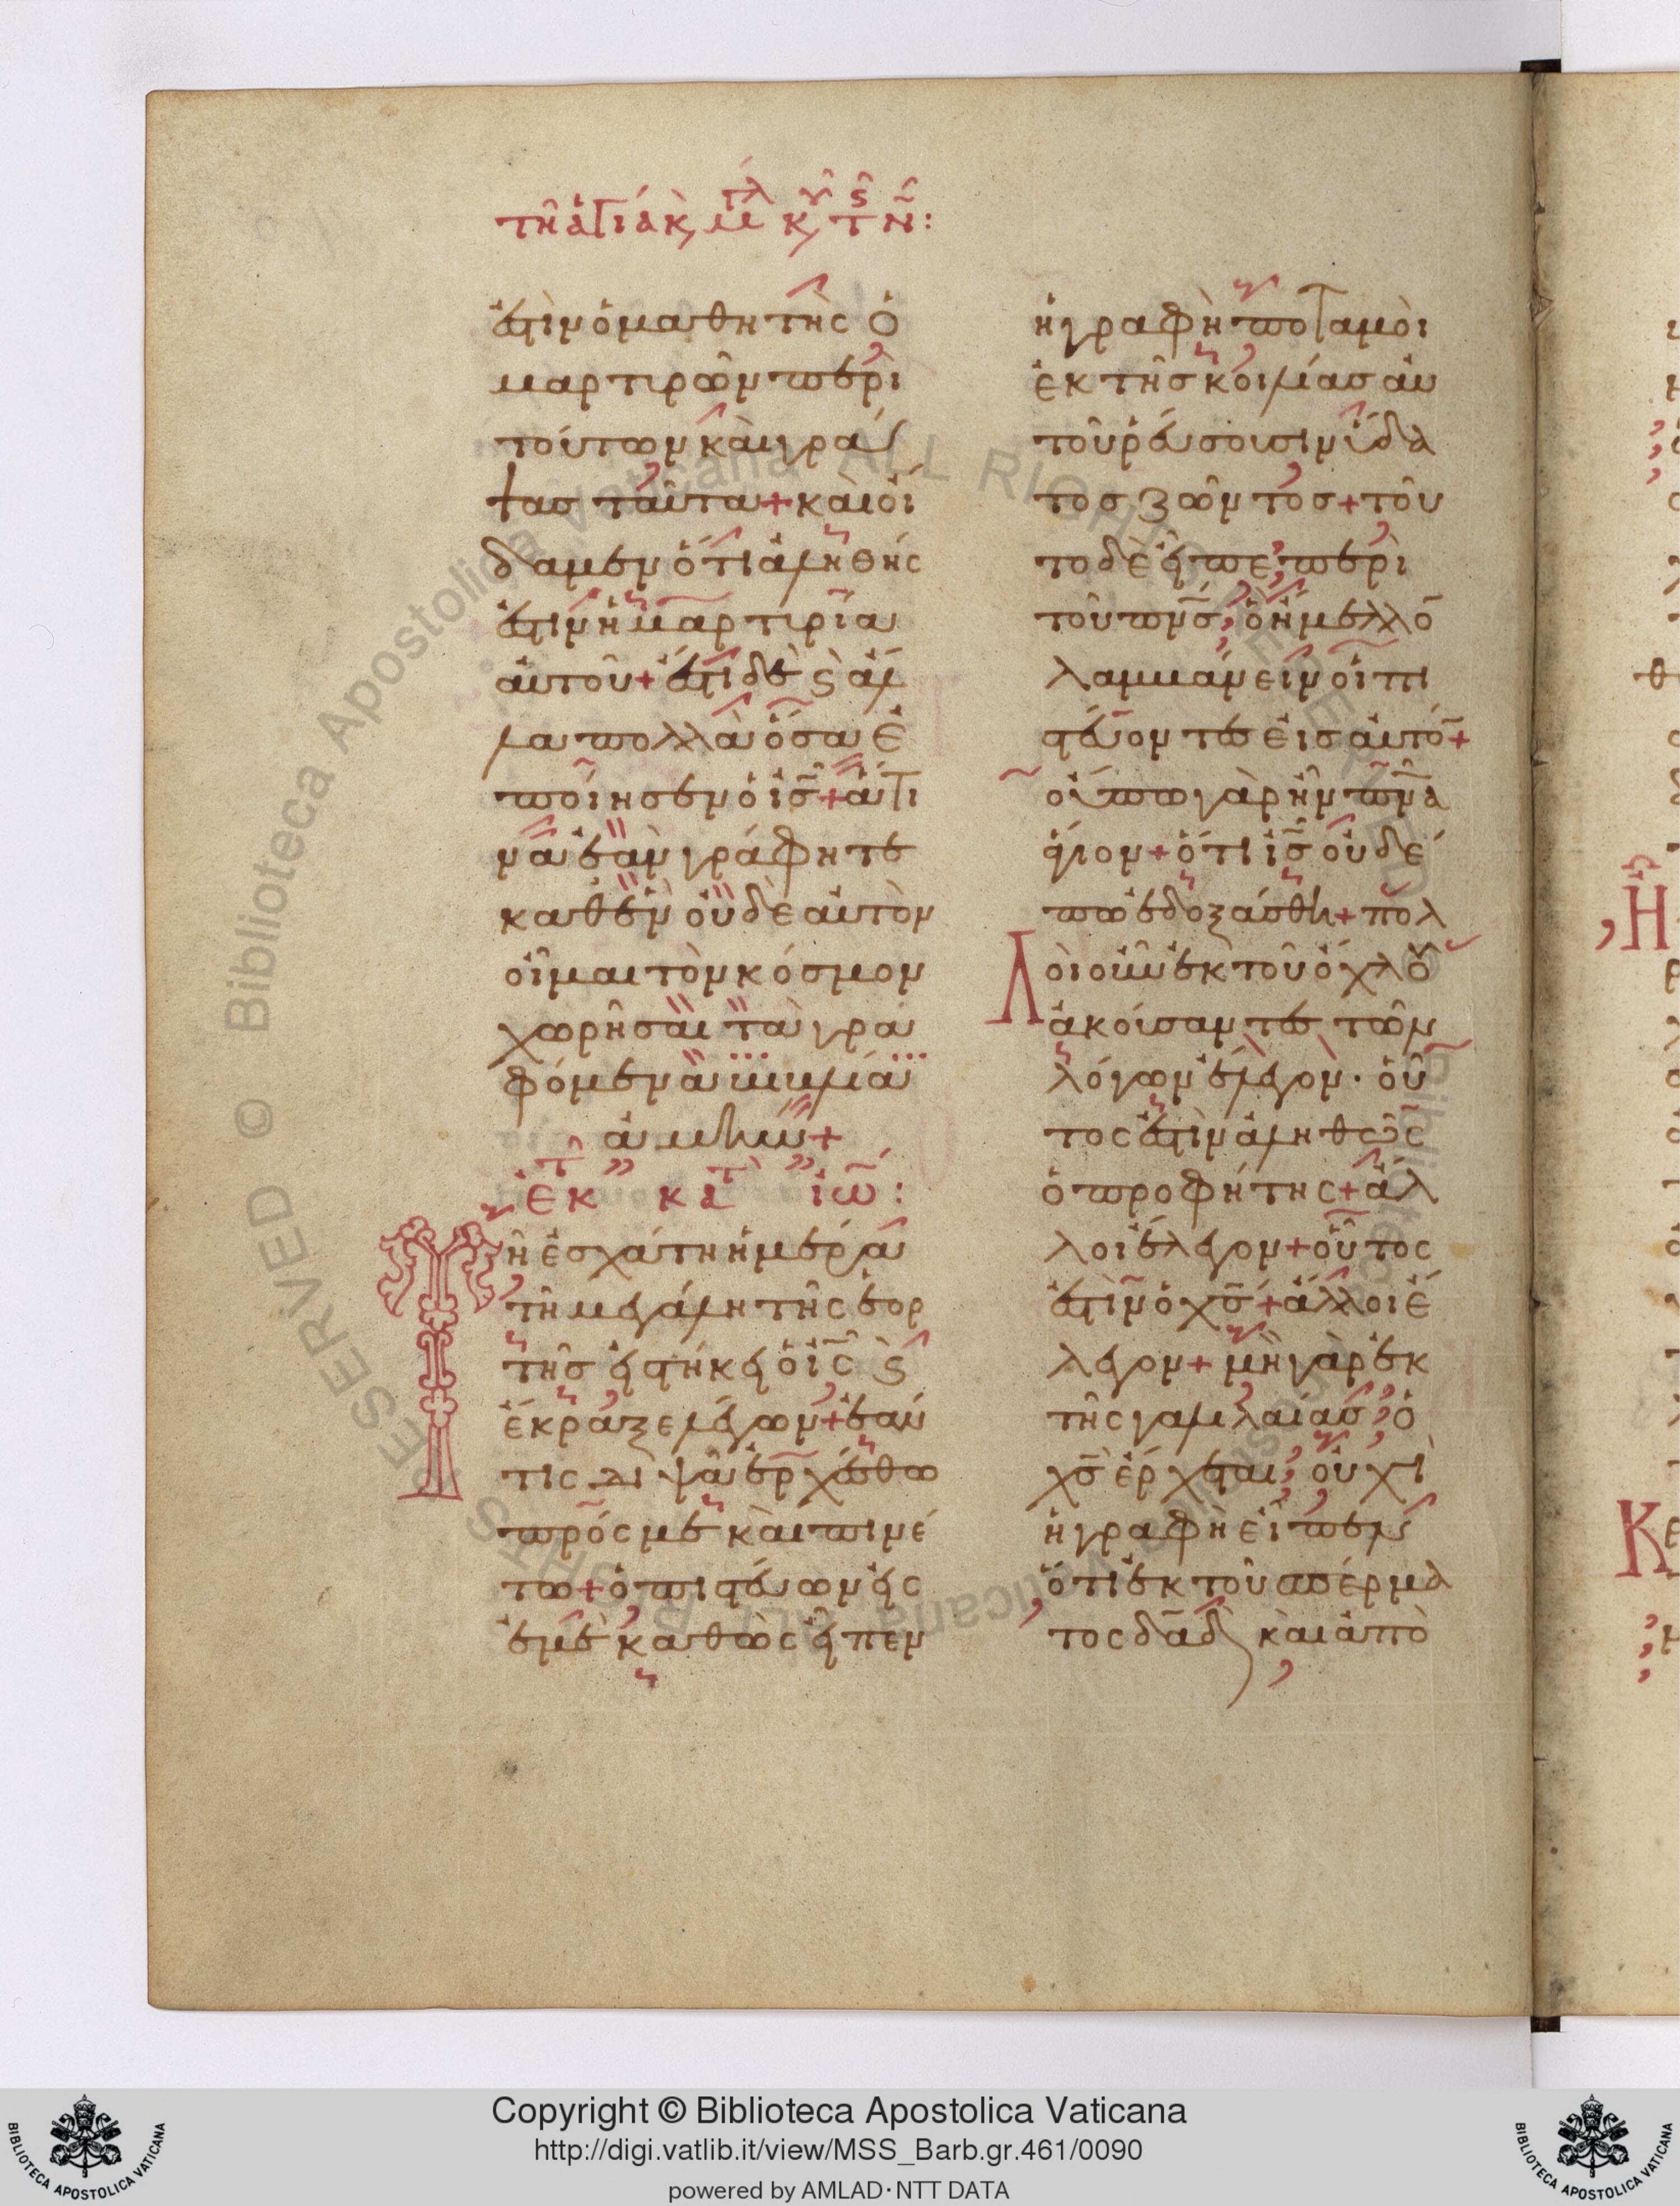 ἐστὶν ὁ μαθητὴς ὁ
μαρτιρῶν περὶ
τούτων καὶ γρά
ψας ταῦτα + καὶ οἴ
δαμεν ὅτι ἀληθής
ἐστιν ἡ μαρτιρία
αὐτοῦ + ἔστι δὲ ϛ̀ ἄλ
λα πολλὰ ὅσα ἐ
ποίησεν ὁ ις̅ + ἅτι
να ἐὰν γράφητε
καθ' ἓν οὐδὲ αὐτὸν
οἶμαι τὸν κόσμον
χωρῆσαι τὰ γρα
φόμενα βιβλία
ἀμήν +
ἐκ τ κατ ιω̅ :
Τῆ ἐσχάτη ἡμέρα
τῆ μεγάλη τῆς ἑορ
τῆσ εἱστήκει ὁ ις̅ ϛ̀
ἔκραξε λέγων + ἐάν
τις διψᾶ ἐρχέσθω
πρός με καὶ πινέ
τω + ὁ πιστεύων εἰς
ἐμὲ καθὼς εἶπεν
ἡ γραφὴ ποταμοὶ
ἐκ τῆσ κοιλίασ αὐ
τοῦ ῥεύσουσιν ὕδα
τοσ ζῶντοσ + τοῦ
το δὲ εἶπε περὶ
τοῦ πνς̅ ὃ ἤμελλο̅
λαμβάνειν οἱ πι
στεύοντεσ εἰσ αὐτό̅ +
οὔπω γὰρ ἦν πνα̅
ἅγιον + ὅτι ις̅ οὐδέ
πω ἐδοξάσθη + πολ
Λοὶ οὖν ἐκ τοῦ ὄχλου
ἀκούσαντεσ τῶν
λόγων ἔλεγον · οὗ
τος ἐστὶν ἀληθῶς
ὁ προφήτης + ἄλ
λοι ἔλεγον + οὗτος
ἐστὶν ὁ χς̅ + ἄλλοι ἔ
λεγον + μὴ γὰρ ἐκ
τῆς γαλιλαίασ ὁ
χς̅ ἔρχεται ; οὐχὶ
ἡ γραφὴ εἶπεν
ὅτι ἐκ τοῦ σπέρμα
τος δα̅δ καὶ ἀπὸ
Biblioteca Apostolica Vaticana ALL RIGHTS RESERVED ©
Copyright © Biblioteca Apostolica Vaticana
http://digi.vatlib.it/view/MSS_Barb.gr.461/0090
powered by AMLAD·NTT DATA
BIBLIOTECA APOSTOLICA VATICANA
BIBLIOTECA APOSTOLICA VATICANA